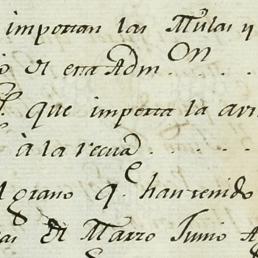 importan las Mulas y
o de esta Adm.on
que importa la
à la recua
grano q.e han venido
de Marzo Junio